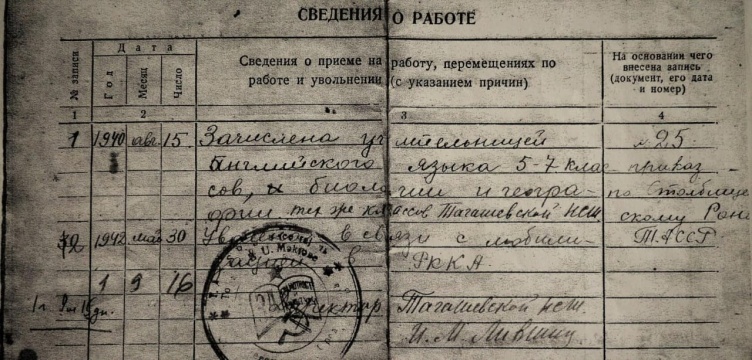 СВЕДЕНИЯ О РАБОТЕ
№ записи
Дата
Год
Месяц
Число
Сведения о приеме на работу, перемещениях по
работе и увольнении (с указанием причин)
На основании чего
внесена запись
(документ, его дата
и номер)
1 2 3 4
1 1940 авг. 15. Зачислена учительницей № 25.
английского языка 5-7 клас- приказ
сов, и биологии и геогра- по Столбище
фии тех же классов Тагашевской нсш. скому Роно
2 1942 май 30 Уволена в связи с мобили- ТАССР
зацией в РККА.
1 9 16
Директор Тагашевской нсш.
И. М.